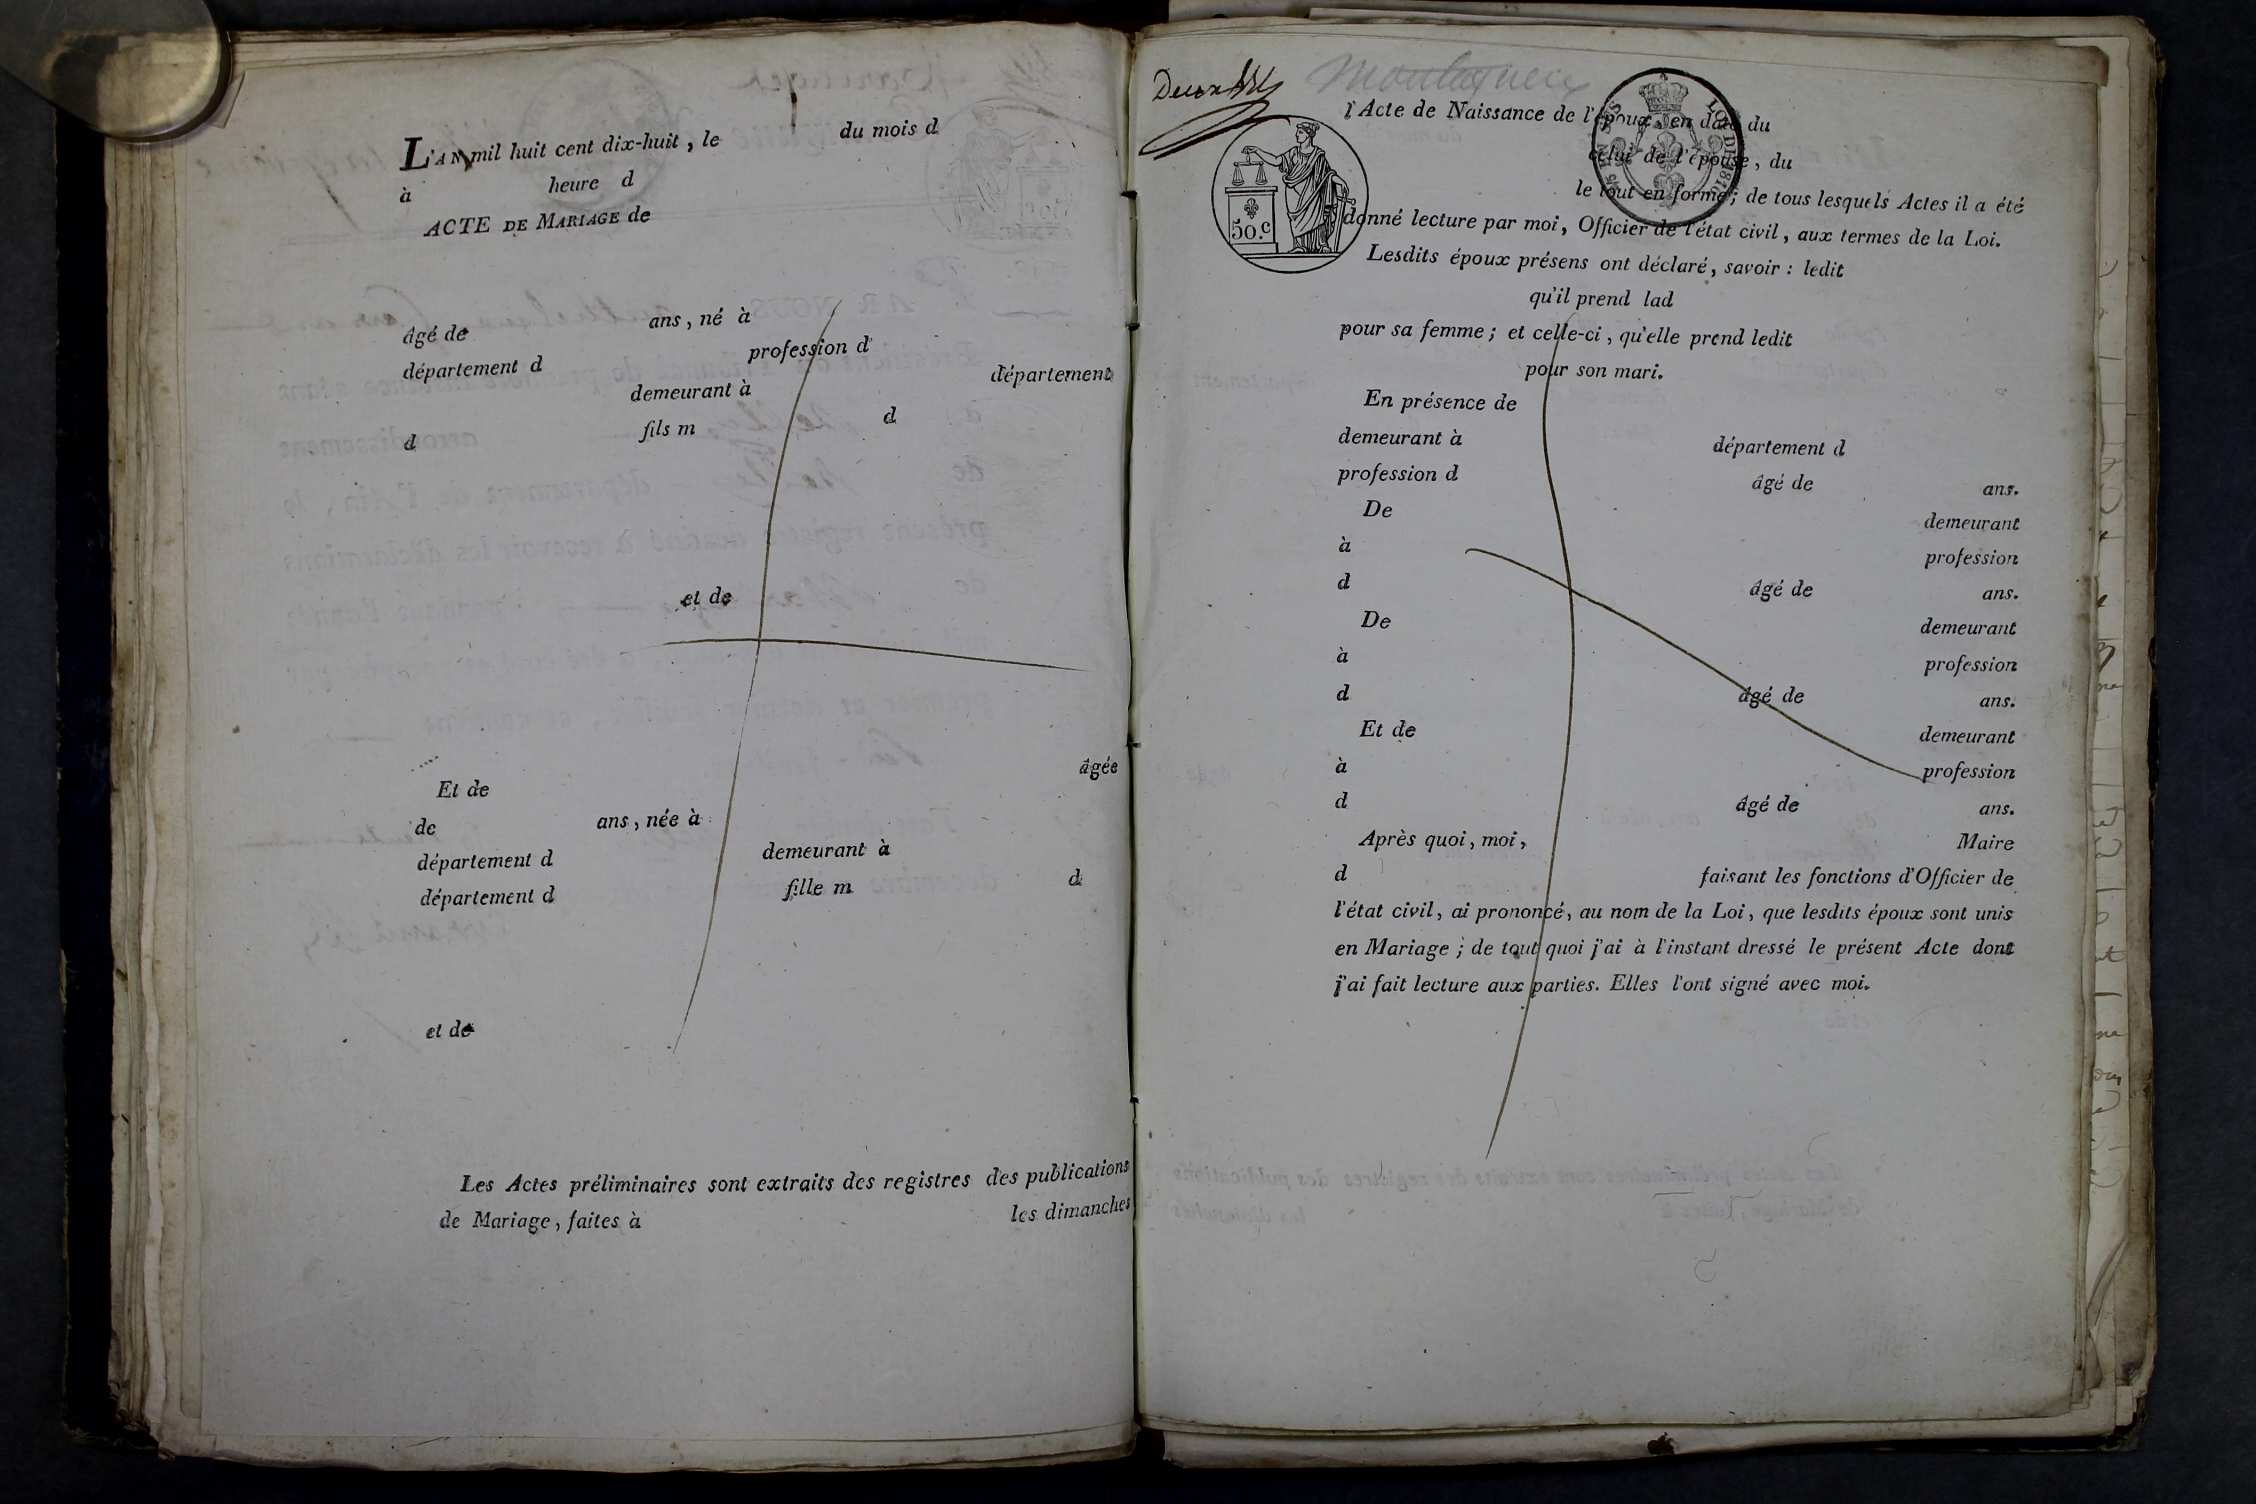 L'AN mil huit cent dix-huit, le du mois d
à heure d
ACTE DE MARIAGE de
âgé de ans, né à
département d profession d
d demeurant à département
fils m d
et de
Et de âgée
de ans, née à
département d demeurant à
département d fille m d
et de
Les Actes préliminaires sont extraits des registres des publications
de Mariage, faites à les dimanches
l'Acte de Naissance de l'époux, en date du
celui de l'épouse, du
le tout en forme; de tous lesquels Actes il a été
donné lecture par moi, Officier de l'état civil, aux termes de la Loi.
50.c
LOI DE 1816
Lesdits époux présens ont déclaré, savoir : ledit
qu'il prend lad
pour sa femme; et celle-ci, qu'elle prend ledit
pour son mari.
En présence de
demeurant à département d
profession d âgé de ans.
De demeurant
à profession
d âgé de ans.
De demeurant
à profession
d âgé de ans.
Et de demeurant
à profession
d âgé de ans.
Après quoi, moi, Maire
d faisant les fonctions d'Officier de
l'état civil, ai prononcé, au nom de la Loi, que lesdits époux sont unis
en Mariage; de tout quoi j'ai à l'instant dressé le présent Acte dont
j'ai fait lecture aux parties. Elles l'ont signé avec moi.